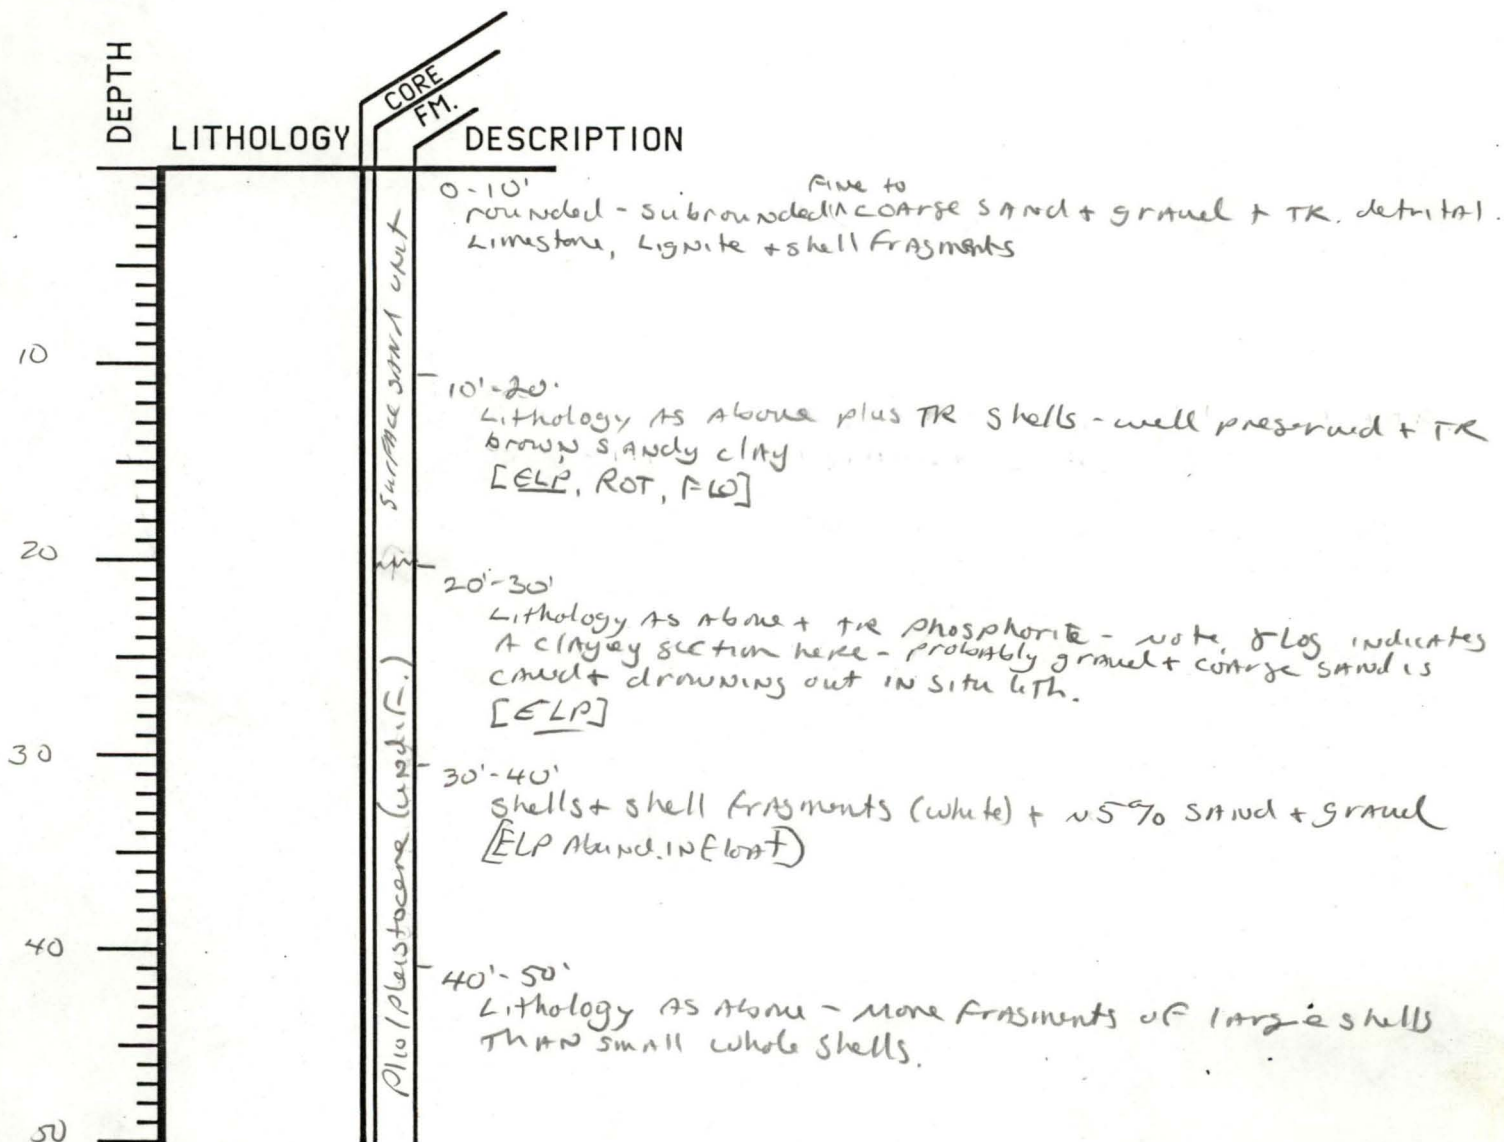 DEPTH
LITHOLOGY
CORE
FM.
DESCRIPTION
0-10'
fine to
rounded - subrounded ^ coarse sand + gravel + TR. detrital
Limestone, Lignite + shell fragments
SURFACE SAND UNIT
10
10'-20'
Lithology as above plus TR shells - well preserved + TR
brown sandy clay
[ELP, ROT, FLO]
20
20'-30'
Lithology as above + TR phosphorite - note, γ Log indicates
a clayey section here - probably gravel + coarse sand is
caved + drowning out in situ lith.
[ELP]
30
30'-40'
shells + shell fragments (white) + ~5% sand + gravel
[ELP Abund. in float]
Plio/Pleistocene (undif.)
40
40'-50'
Lithology as above - more fragments of large shells
than small whole shells.
50